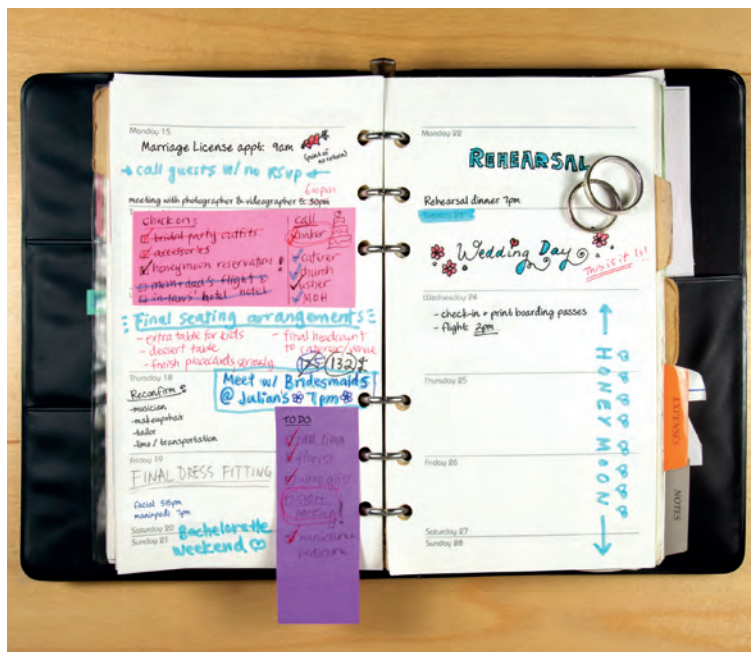 Monday 15
Marriage License appt: 9am
(point of no return)
→ call guests w/ no RSVP ←
6:00pm
meeting with photographer & videographer @ 5:30pm
check on:
bridal party outfits
accessories
honeymoon reservation !
mom + dad's flight
in-laws' hotel
call
baker
caterer
church
usher
MOH
Final seating arrangements
- extra table for kids
- dessert table
- finish placecards seriously
- final headcount to caterer/venue
132
Thursday 18
Meet w/ Bridesmaids
@ Julian's 7pm
Reconfirm:
-musician
-makeup+hair
-tailor
-limo / transportation
Friday 19
FINAL DRESS FITTING
facial: 5:15pm
mani+pedi: 7pm
Saturday 20
Sunday 21
Bachelorette
Weekend
TO DO
call limo
florist
wrap gifts
START
PACKING!
manicure +
pedicure
Monday 22
REHEARSAL
Rehearsal dinner 7pm
Tuesday 23
Wedding Day
This is it!!
Wednesday 24
- check-in + print boarding passes
- flight: 2pm
HONEYMOON
Thursday 25
Friday 26
Saturday 27
Sunday 28
EXPENSES
NOTES